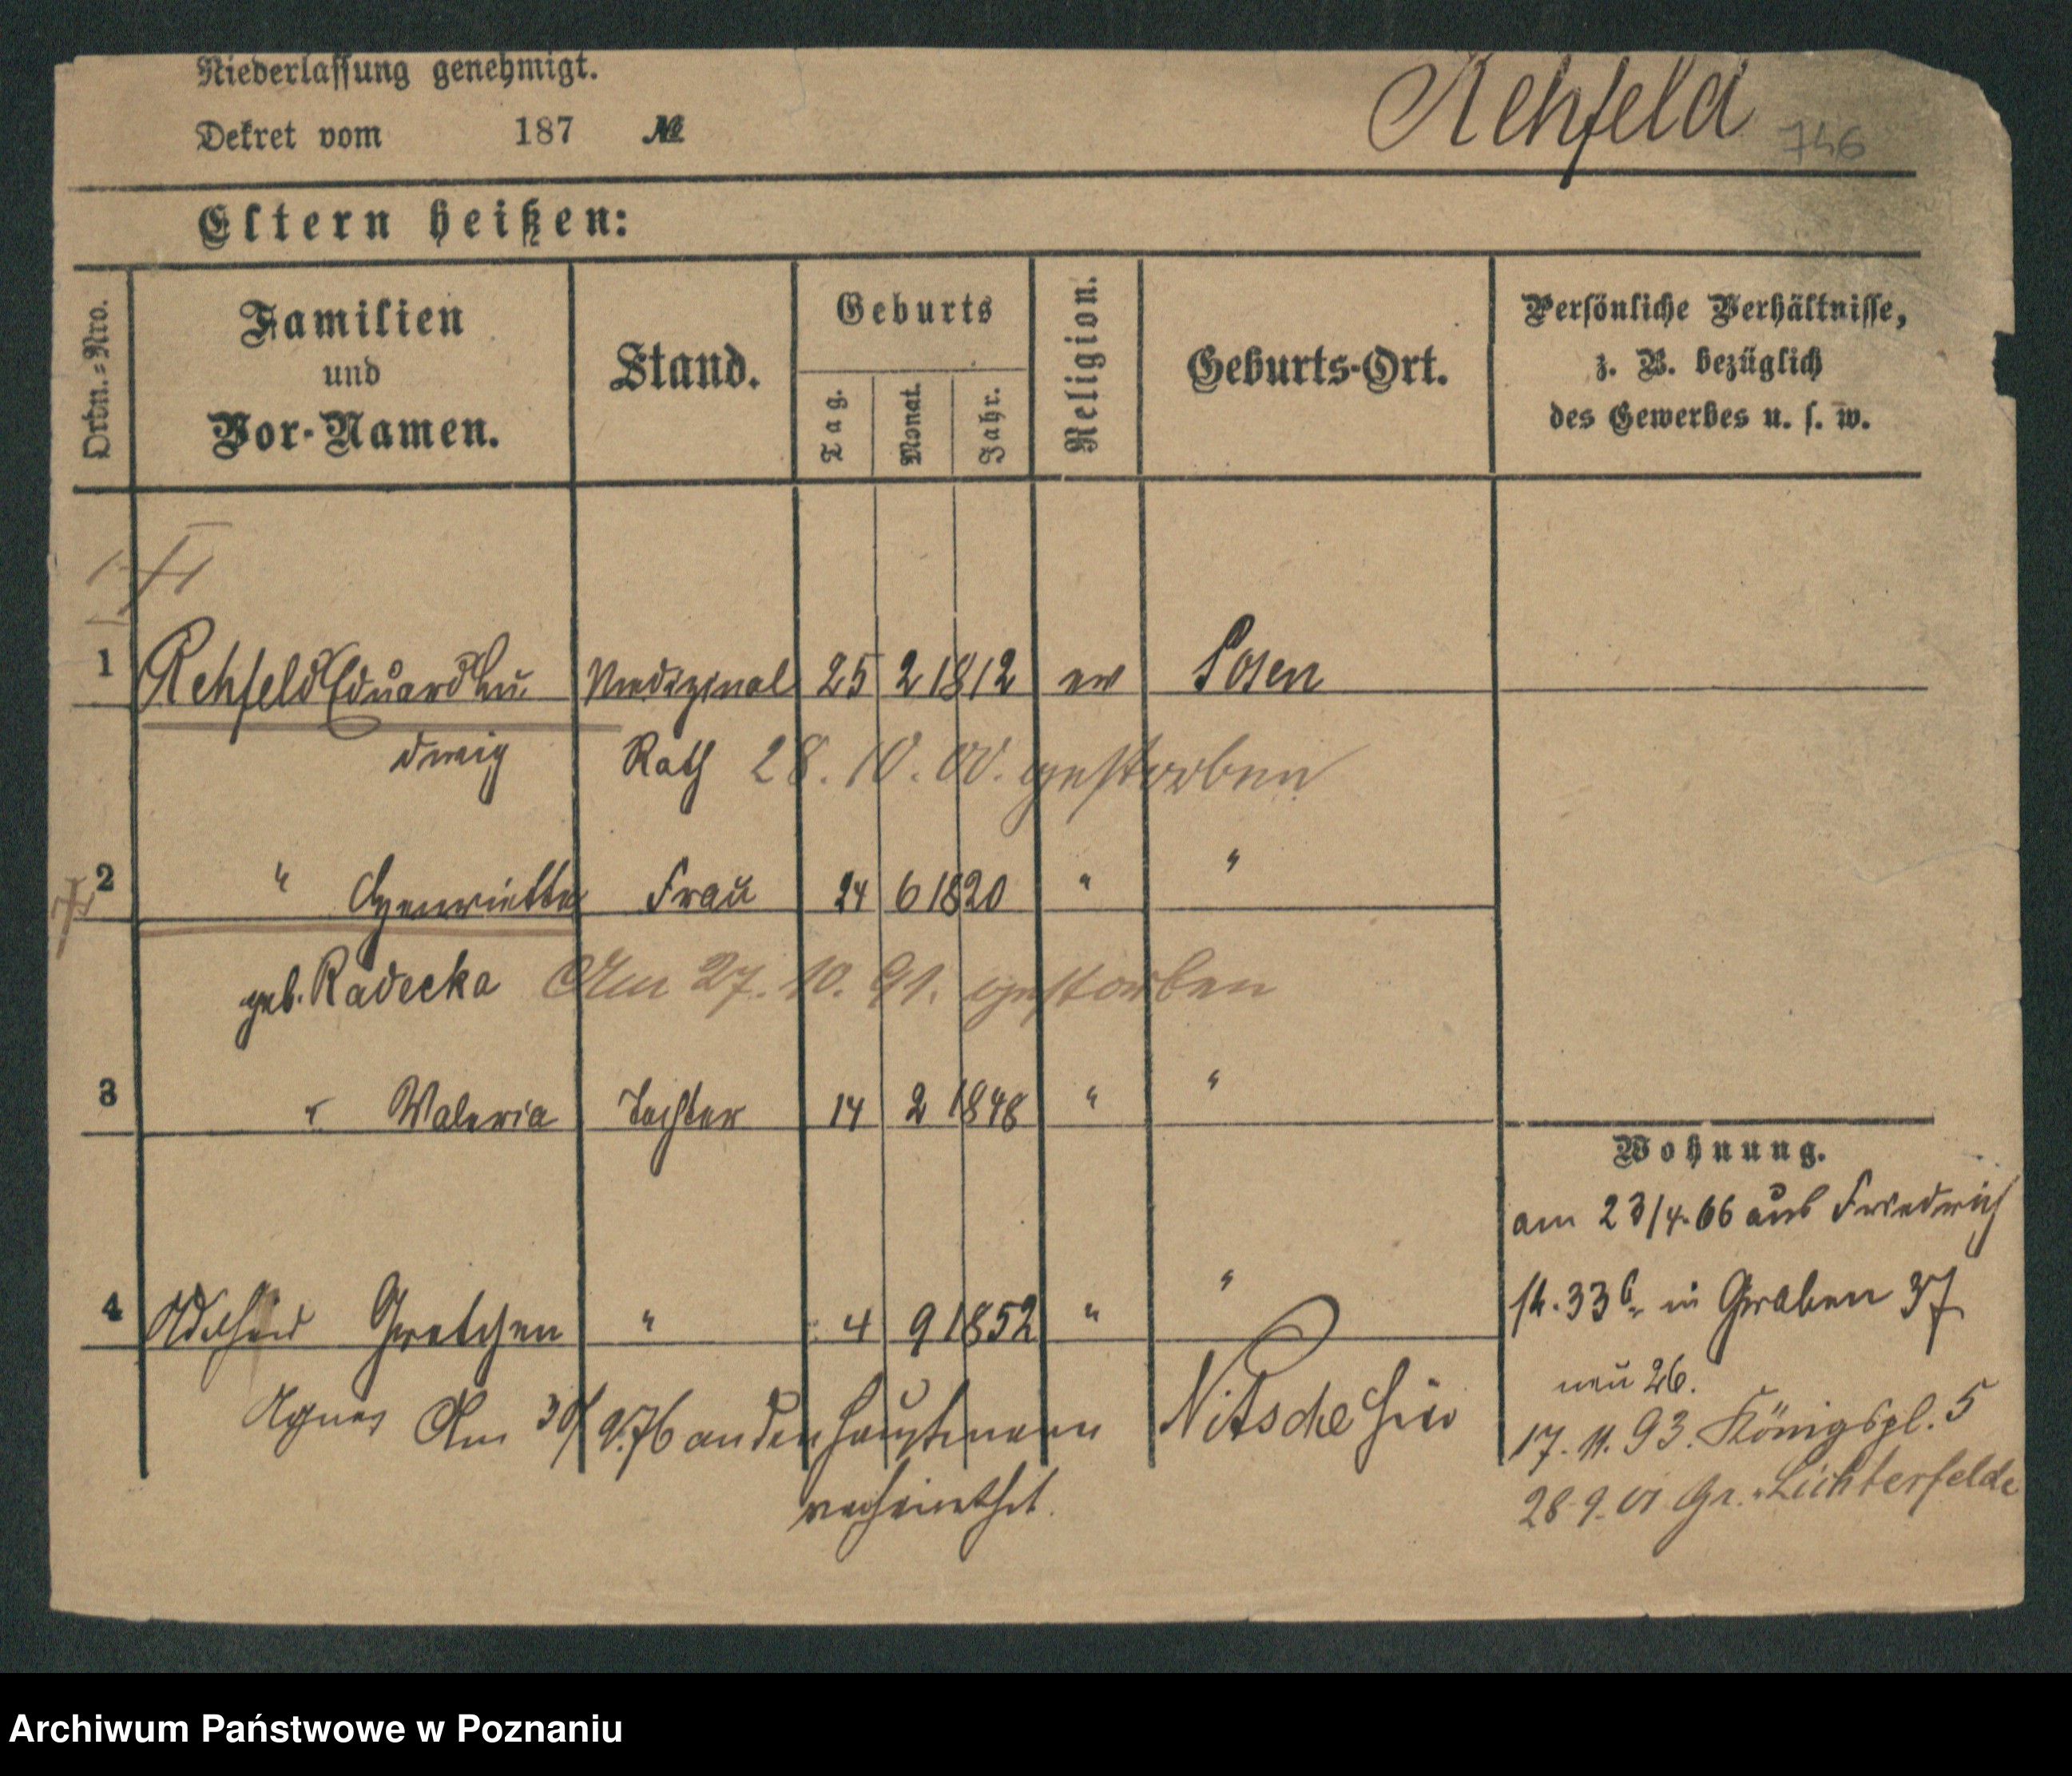 Niederlassung genehmigt.
Dekret vom 187 №
Rehfeld 746
Eltern heißen:
Ordn.=Nro.
Familien
und
Vor-Namen.
Stand.
Geburts
Tag.
Monat.
Jahr.
Religion.
Geburts-Ort.
Persönliche Verhältnisse,
z. B. bezüglich
des Gewerbes u. s. w.
1 Rehfeld Eduard Lu Medizinal 25 2 1812 ev Posen
dwig Rath 28. 10. 00. gestorben
2 " Henriette Frau 24 6 1820 " "
geb. Radecka Am 27. 10. 91. gestorben
3 " Waleria Tochter 14 2 1848 " "
4 Adelheid Gretchen " 4 9 1852 " "
Agnes Am 30/9.76 an den Hauptmann Nitsche hier
verheirathet.
Wohnung.
am 23/4.66 aus Friedrich
st. 33b. in Graben 37
neu 26.
17. 11. 93. Königspl. 5
28.9.01 Gr. Lichterfelde
Archiwum Państwowe w Poznaniu